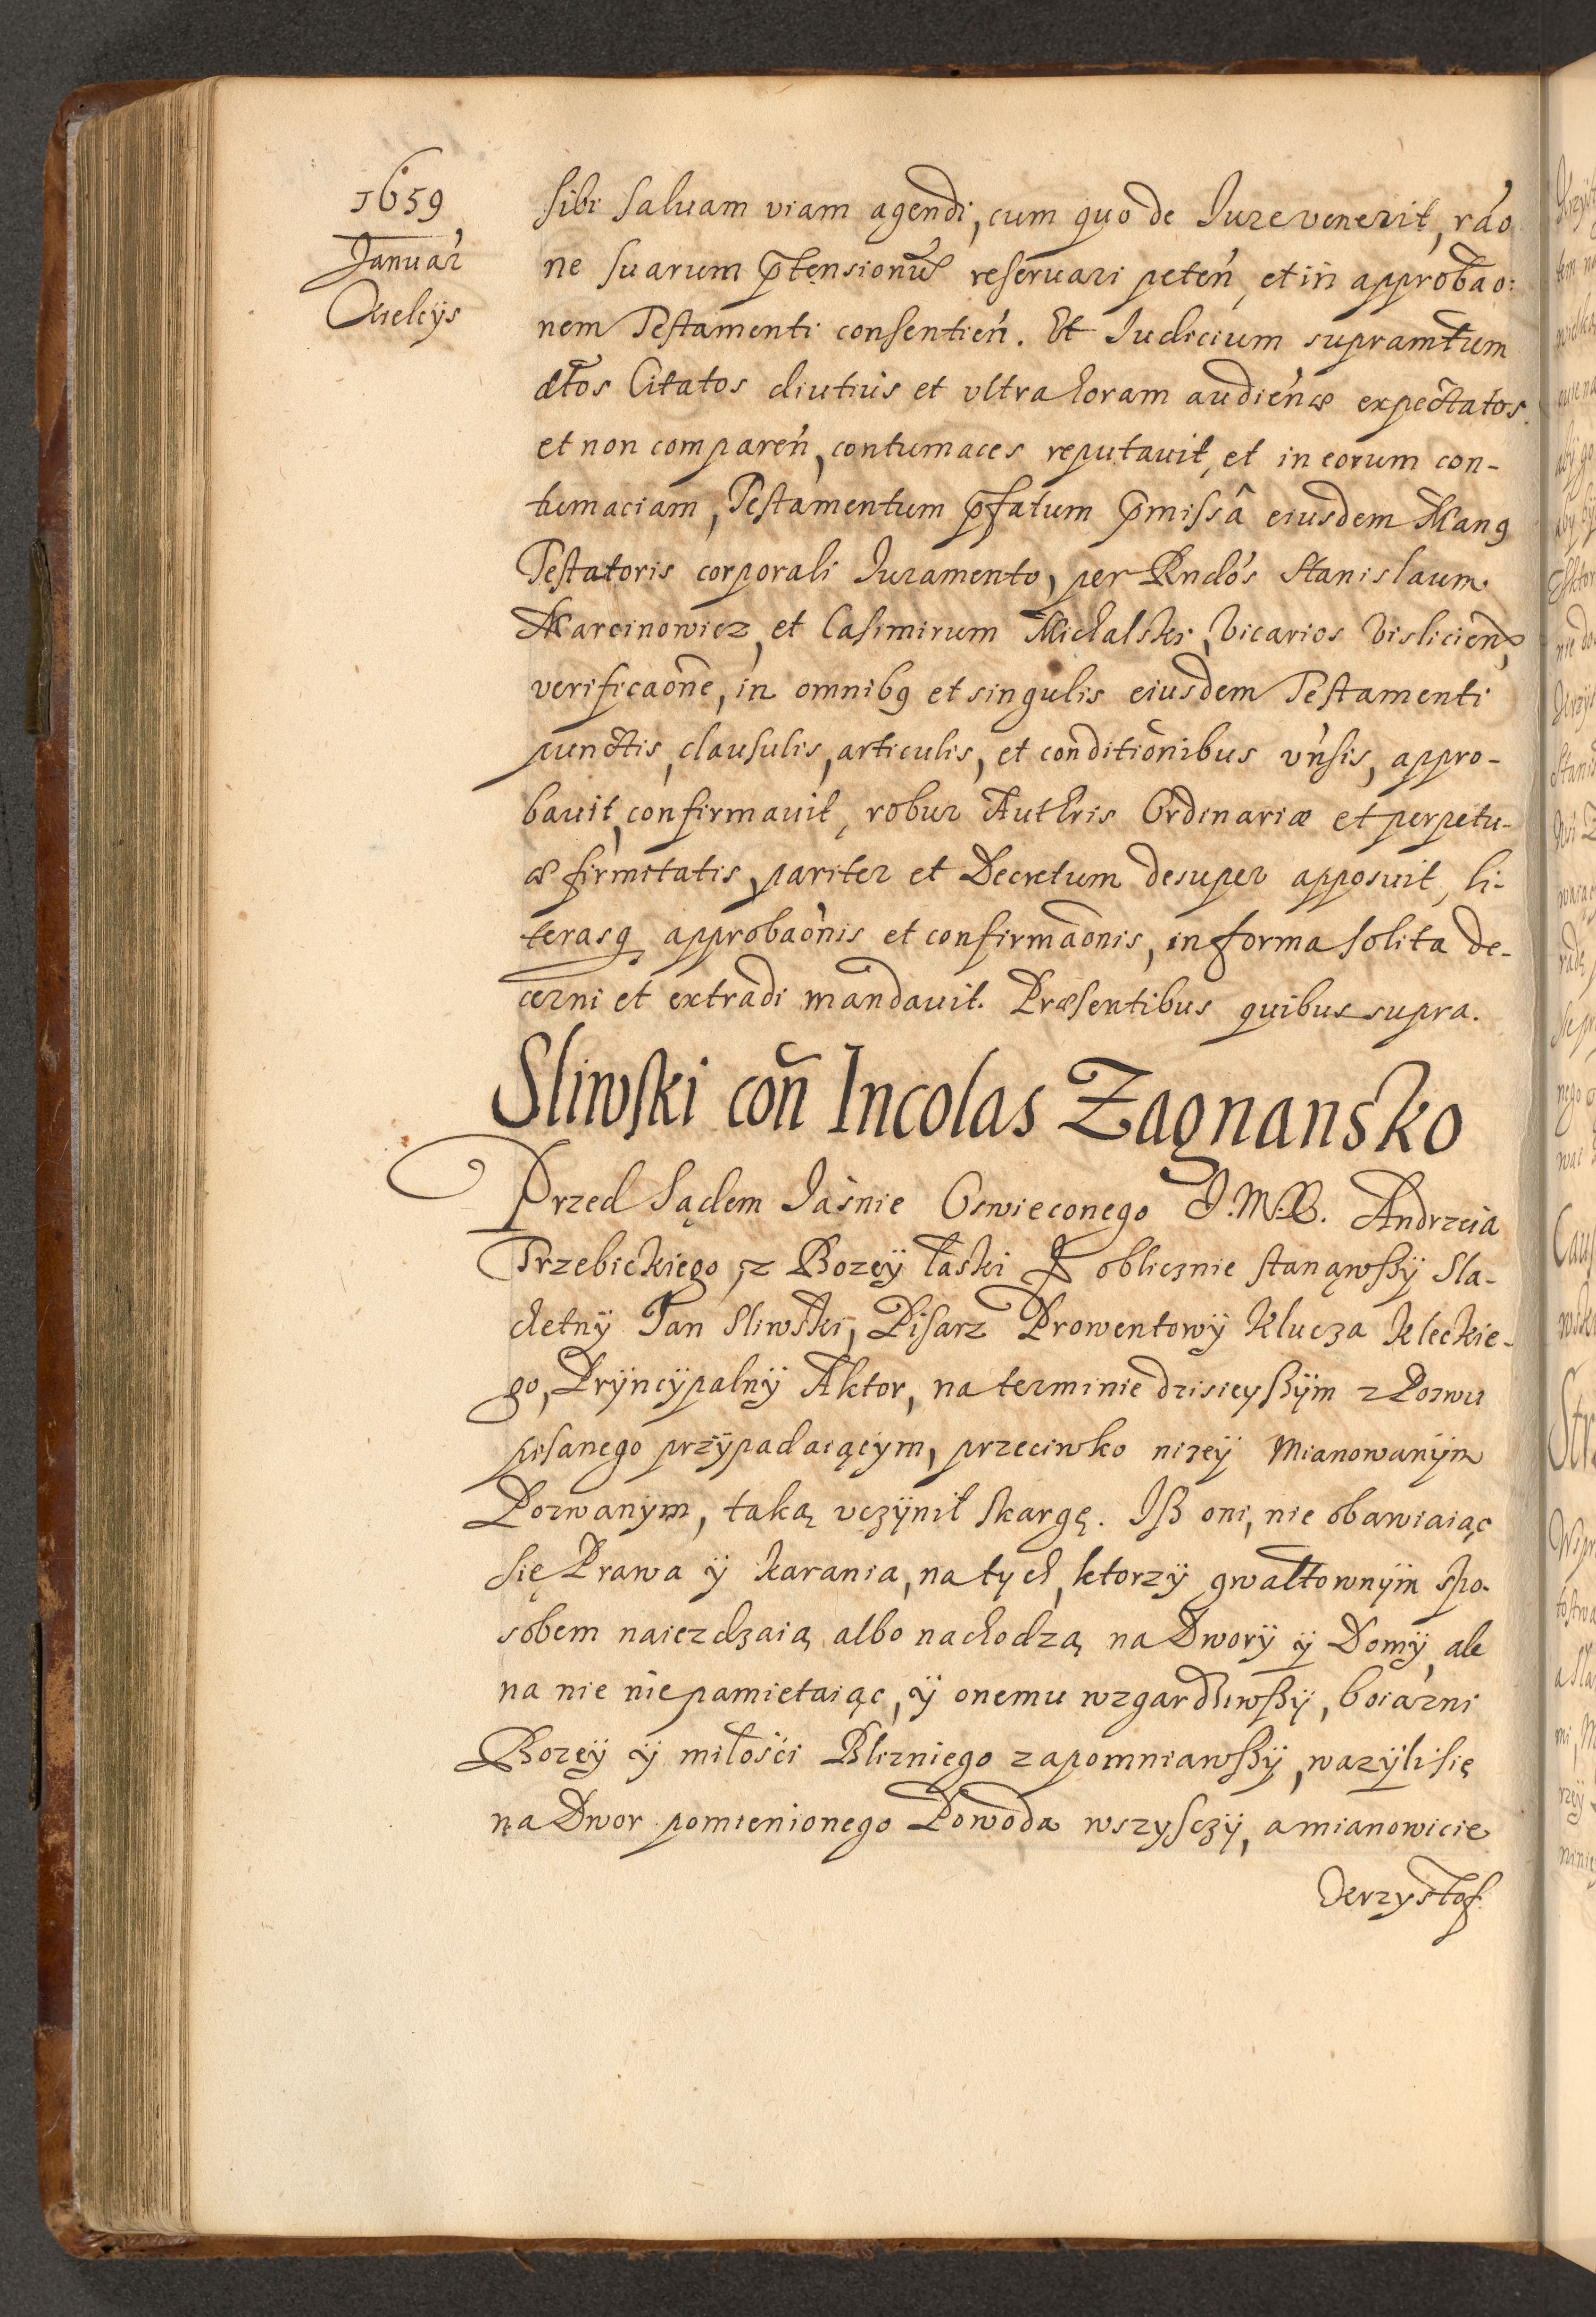 1659
Januar
Kielcÿs
sibi saluam viam agendi, cum quo de Iure venerit, rao
ne suarum ptensionu reseruari peten, et in approbao:
nem Testamenti consentien. Et Iudicium supramtum
dtos Citatos diutius et vltra horam audienæ expectatos
et non comparen, contumaces reputauit, et in eorum con-
tumaciam, Testamentum pfatum pmissâ eiusdem Mang
Testatoris corporali Iuramento, per Rndos Stanislaum
Marcinowicz, et Casimirum Michalski, Vicarios Vislicien,
verificaone, in omnibq et singulis eiusdem Testamenti
punctis, clausulis, articulis, et conditionibus vnsis, appro-
bauit, confirmauit, robur Authris Ordinariæ et perpetu-
æ firmitatis, pariter et Decretum desuper apposuit, li-
terasq approbaonis et confirmaonis, in forma solita de-
cerni et extradi mandauit. Præsentibus quibus supra.
Sliwski con Incolas Zagnansko
Przed Sądem Iaśnie Oswieconego J.M.X. Andrzeia
Trzebickiego, z Bozeÿ łaski oblicznie stanąwßÿ Sla-
chetnÿ Jan Sliwski, Pisarz Prowentowÿ Klucza Kleckie-
go, Prÿncÿpalnÿ Aktor, na terminie dzisieyßÿm z Pozwu
pisanego przÿpadaiącym, przeciwko nizeÿ mianowanÿm
Pozwanÿm, taką vczÿnił skargę. Iß oni, nie obawiaiąc
się Prawa ÿ karania, na tych, ktorzÿ gwałtownÿm spo-
sobem naiezdzaią albo nachodzą na Dworÿ ÿ Domÿ, ale
na nie nie pamietaiąc, ÿ onemu wzgardziwßÿ, boiazni
Bozeÿ ÿ miłości Blizniego zapomniawßÿ, wazÿli się
na Dwor pomienionego Powoda wszysczÿ, a mianowicie
Krzysztof